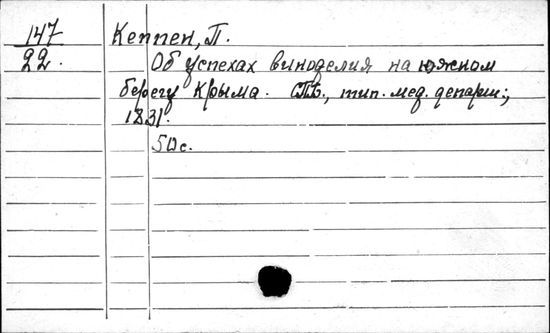 147 Кеппен, П.
22. Об успехах виноделия на южном
берегу Крыма. СПб., тип. мед. департ.,
1831.
50 с.